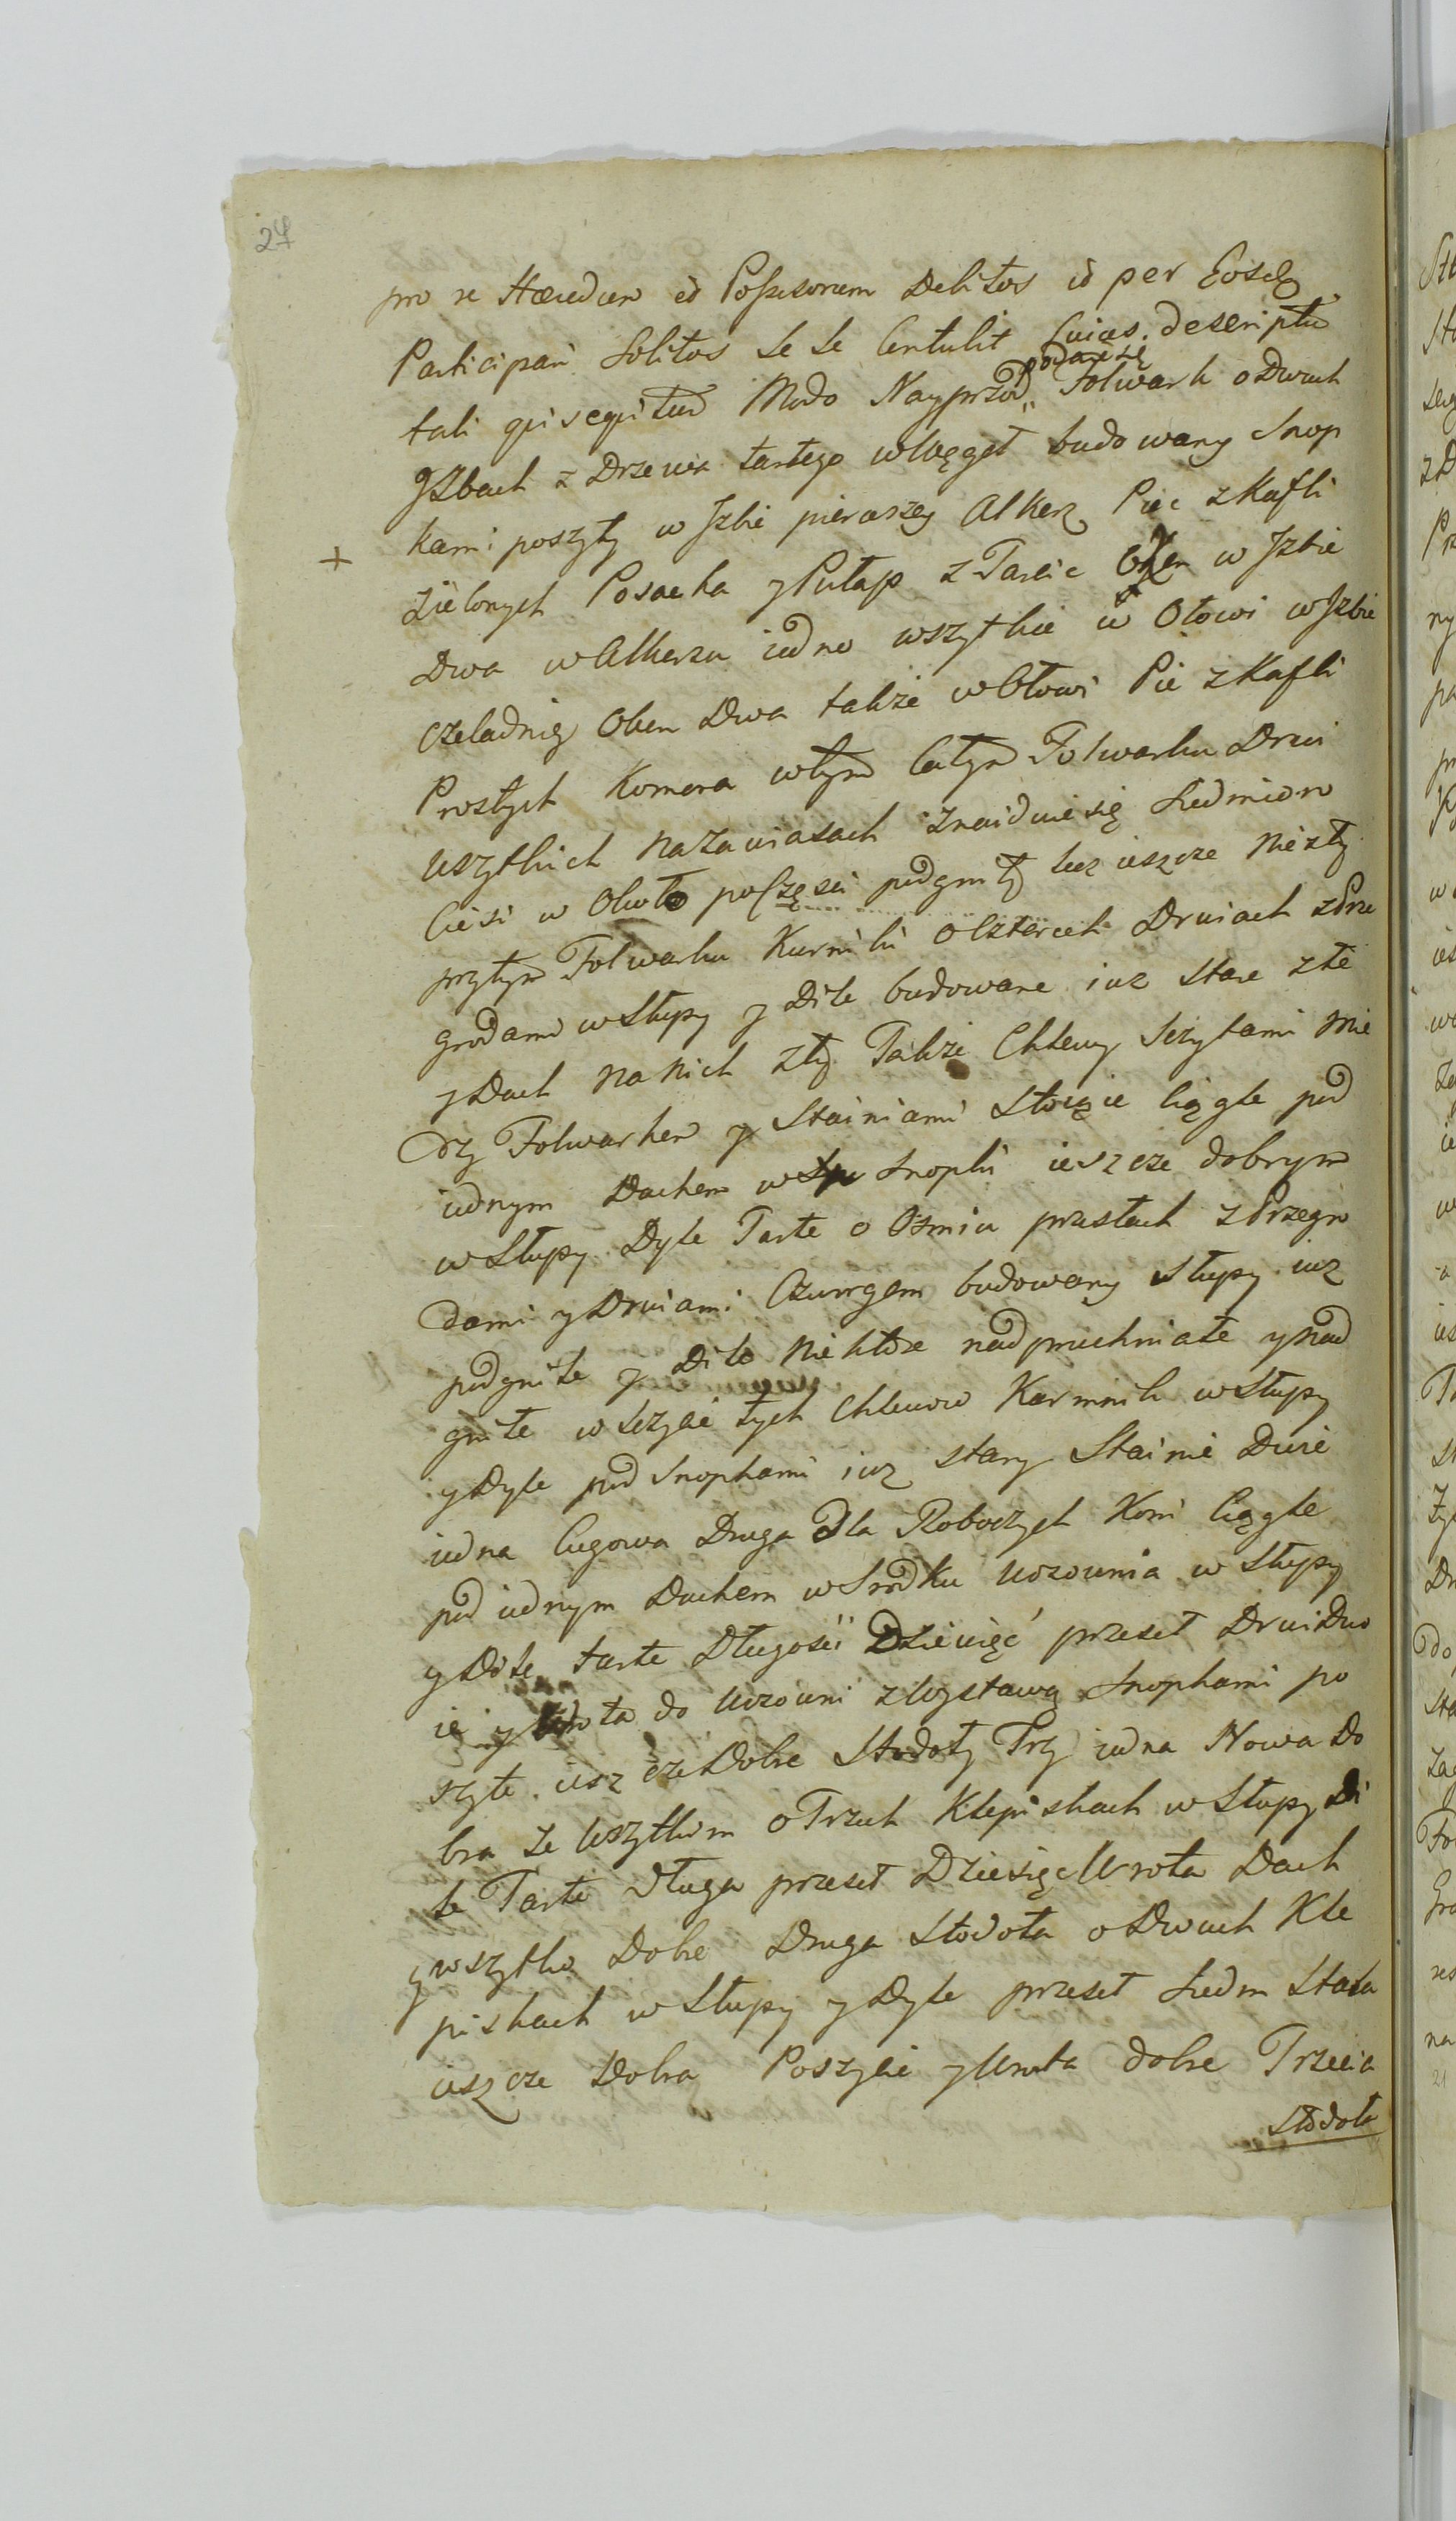 24
pro re Haeredum et Possessorum Debitos et per Eosdq
Participari Solitos se se Contulit Cuius descriptio
tali qui sequitur Modo Nayprzod podaie się Folwark o Dwuch
Jzbach z Drzewa tartego w Węgeł budowany Snop
kami poszyty w Jzbie pierwszey Alkerz Piec z Kafli
Zielonych Posacka y Pułap z Tarcic Okien w Jzbie
Dwa w Alkerzu iedno wszytkie w Ołowi w Jzbie
Czeladniey Okien Dwa także w Ołowi Pie z Kafli
Prostych Komora w tym Całym Folwarku Drzwi
wszytkich na zawiasach znaiduie się Siedmioro
Ciesi w Około po Części podgniły lecz ieszcze nie zły
przytym Folwarku Kurniki o Czterech Drzwiach z Prze
grodami w Słupy y Dile budowane iuz stare złe
y Dach na nich zły Także Chlewy Sczytami Mie
dzy Folwarkem y Stainiami Stoiące Ciągle pod
iednym Dachem w Snopki ieszcze dobrym
w Słupy Dyle Tarte o Osmiu przesłach z Przegro
dami y Drzwiami Czurrgem budowany Słupy iuz
podgnite y Dile niektore nadpruchniałe y nad
gniłe w Sczycie tych Chlewow Karmnik w Słupy
y Dyle pod Snopkami iuz stary Stainie Dwie
iedna Cugowa Druga Dla Roboczych Koni Ciągłe
pod iednym Dachem w Srodku Wozownia w Słupy
y Dile tarte Długości Dziewięć przeseł Drzwi Dwo
ie y Wrota do Wozowni z Wystawą Snopkami po
szyte ieszcze Dobre Stodoły Trzy iedna Nowa Do
bra ze Wszytkim o Trzech Klepiskach w Słupy Di
le Tarte Długa przeseł Dziesięc Wrota Dach
y wszytko Dobre Druga Stodoła o Dwuch Kle
piskach w Słupy y Dyle przeseł Siedm Stara
ieszcze Dobra Poszycie y Wrota dobre Trzecia
Stodoła